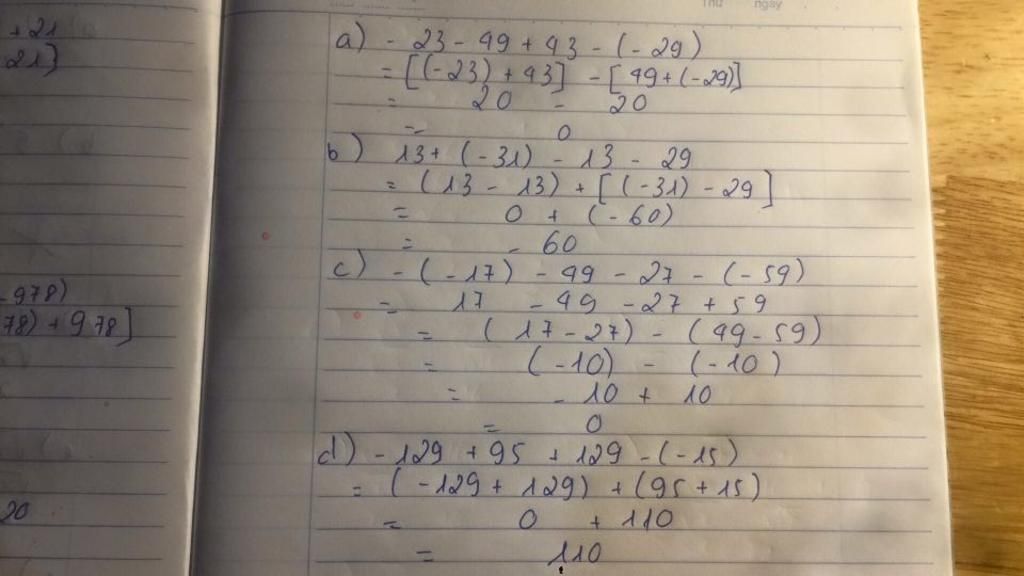 +21
21)
-978)
78) + 978]
20
Thứ ngày
a) - 23 - 49 + 43 - (-29)
= [(-23) + 43] - [49 + (-29)]
= 20 - 20
= 0
b) 13 + (-31) - 13 - 29
= (13 - 13) + [(-31) - 29]
= 0 + (-60)
= -60
c) - (-17) - 49 - 27 - (-59)
= 17 - 49 - 27 + 59
= (17 - 27) - (49 - 59)
= (-10) - (-10)
= -10 + 10
= 0
d) -129 + 95 + 129 - (-15)
= (-129 + 129) + (95 + 15)
= 0 + 110
= 110